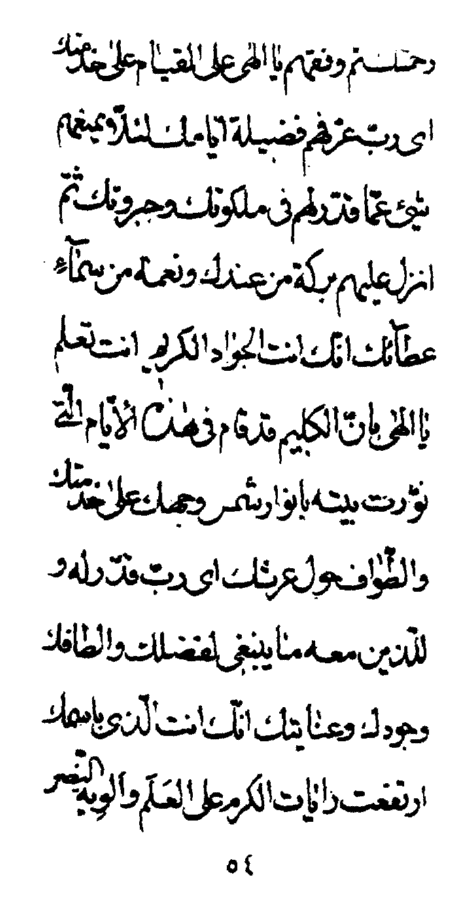 رحمتك ثم وفقهم يا الهى على القيام على خدمتك
اى ربّ عرّفهم فضيلة ايّامك لئلّا يمنعهم
شيئ عمّا قدّر لهم فى ملكوتك وجبروتك ثمّ
انزل عليهم بركة من عندك ونعمة من سمآء
عطآئك انّك انت الجواد الكريم انت تعلم
يا الهى بانّ الكليم قد قام فى هذه الأيّام الّتى
نوّرت بيته بانوار شمس وجهك على خدمتك
والطّواف حول عرشك اى ربّ قدّر له و
للّذين معه ما ينبغى لفضلك والطافك
وجودك وعنايتك انّك انت الّذى باسمك
ارتفعت رايات الكرم على العَلَم وألوية النّصر
٥٤